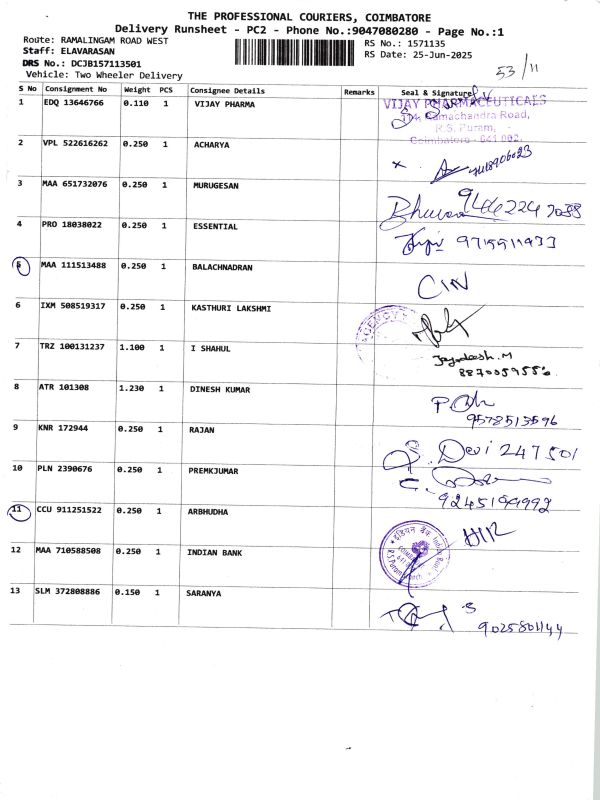 THE PROFESSIONAL COURIERS, COIMBATORE
Delivery Runsheet - PC2 - Phone No.:9047080280 - Page No.:1
Route: RAMALINGAM ROAD WEST
RS No.: 1571135
Staff: ELAVARASAN
RS Date: 25-Jun-2025
DRS No.: DCJB157113501
53/11
Vehicle: Two Wheeler Delivery
S No Consignment No Weight PCS Consignee Details Remarks Seal & Signature
1 EDQ 13646766 0.110 1 VIJAY PHARMA
VIJAY PHARMACEUTICALS
Ramachandra Road,
R.S. Puram,
Coimbatore - 641 002.
2 VPL 522616262 0.250 1 ACHARYA
3 MAA 651732076 0.250 1 MURUGESAN
4 PRO 18038022 0.250 1 ESSENTIAL
5 MAA 111513488 0.250 1 BALACHNADRAN
6 IXM 508519317 0.250 1 KASTHURI LAKSHMI
AGENCY
7 TRZ 100131237 1.100 1 I SHAHUL
Jaydeesh.M
8870059556
8 ATR 101308 1.230 1 DINESH KUMAR
9578513596
9 KNR 172944 0.250 1 RAJAN
Devi 247501
10 PLN 2390676 0.250 1 PREMKJUMAR
9245199992
11 CCU 911251522 0.250 1 ARBHUDHA
12 MAA 710588508 0.250 1 INDIAN BANK
इंडियन बैंक Indian Bank
13 SLM 372808886 0.150 1 SARANYA
9025801144